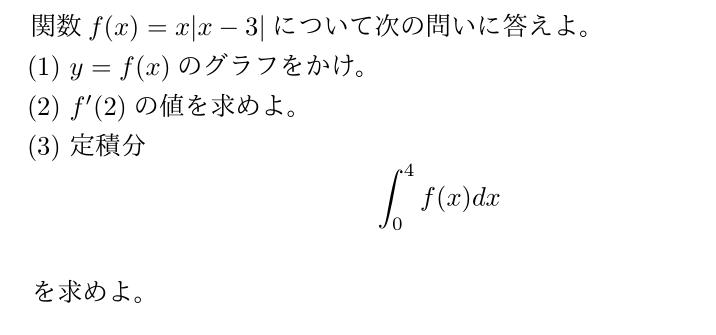 関数 f(x) = x|x − 3| について次の問いに答えよ。
(1) y = f(x) のグラフをかけ。
(2) f′(2) の値を求めよ。
(3) 定積分
∫₀⁴ f(x)dx
を求めよ。